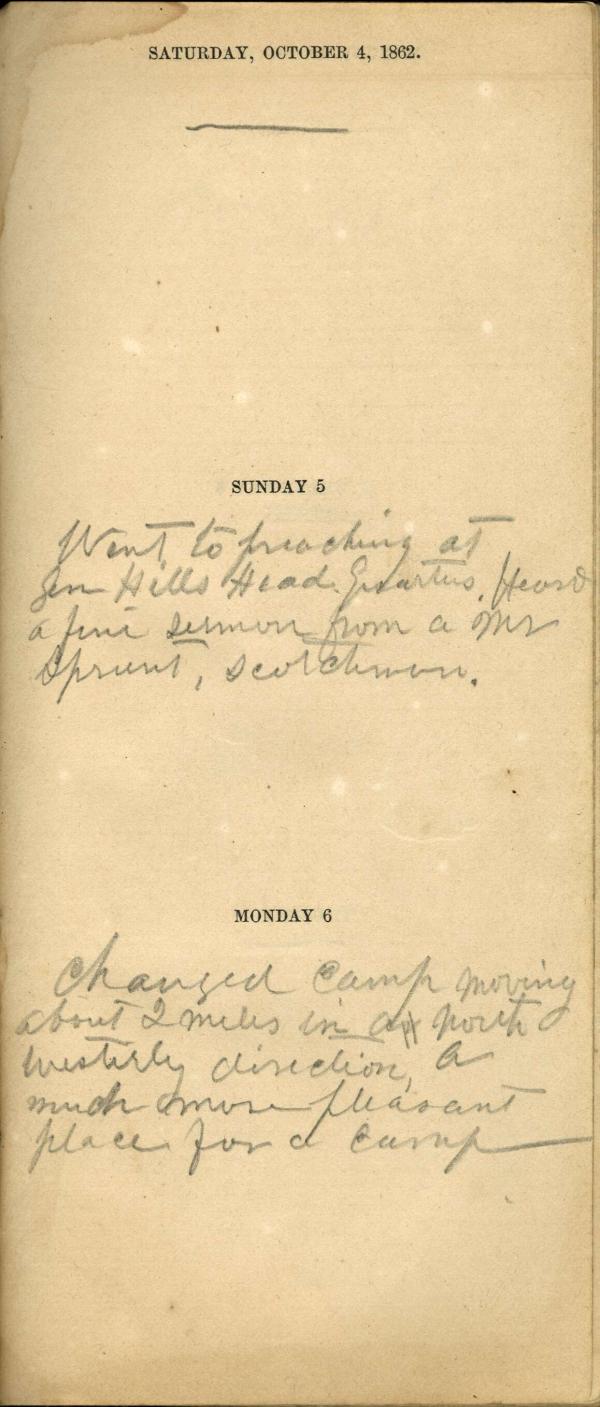 SATURDAY, OCTOBER 4, 1862.
SUNDAY 5
Went to preaching at
Gen Hills Head Quarters, Heard
a fine sermon from a Mr
Sprunt, scotchman.
MONDAY 6
Changed Camp moving
about 2 miles in a north
westerly direction, a
much more pleasant
place for a camp